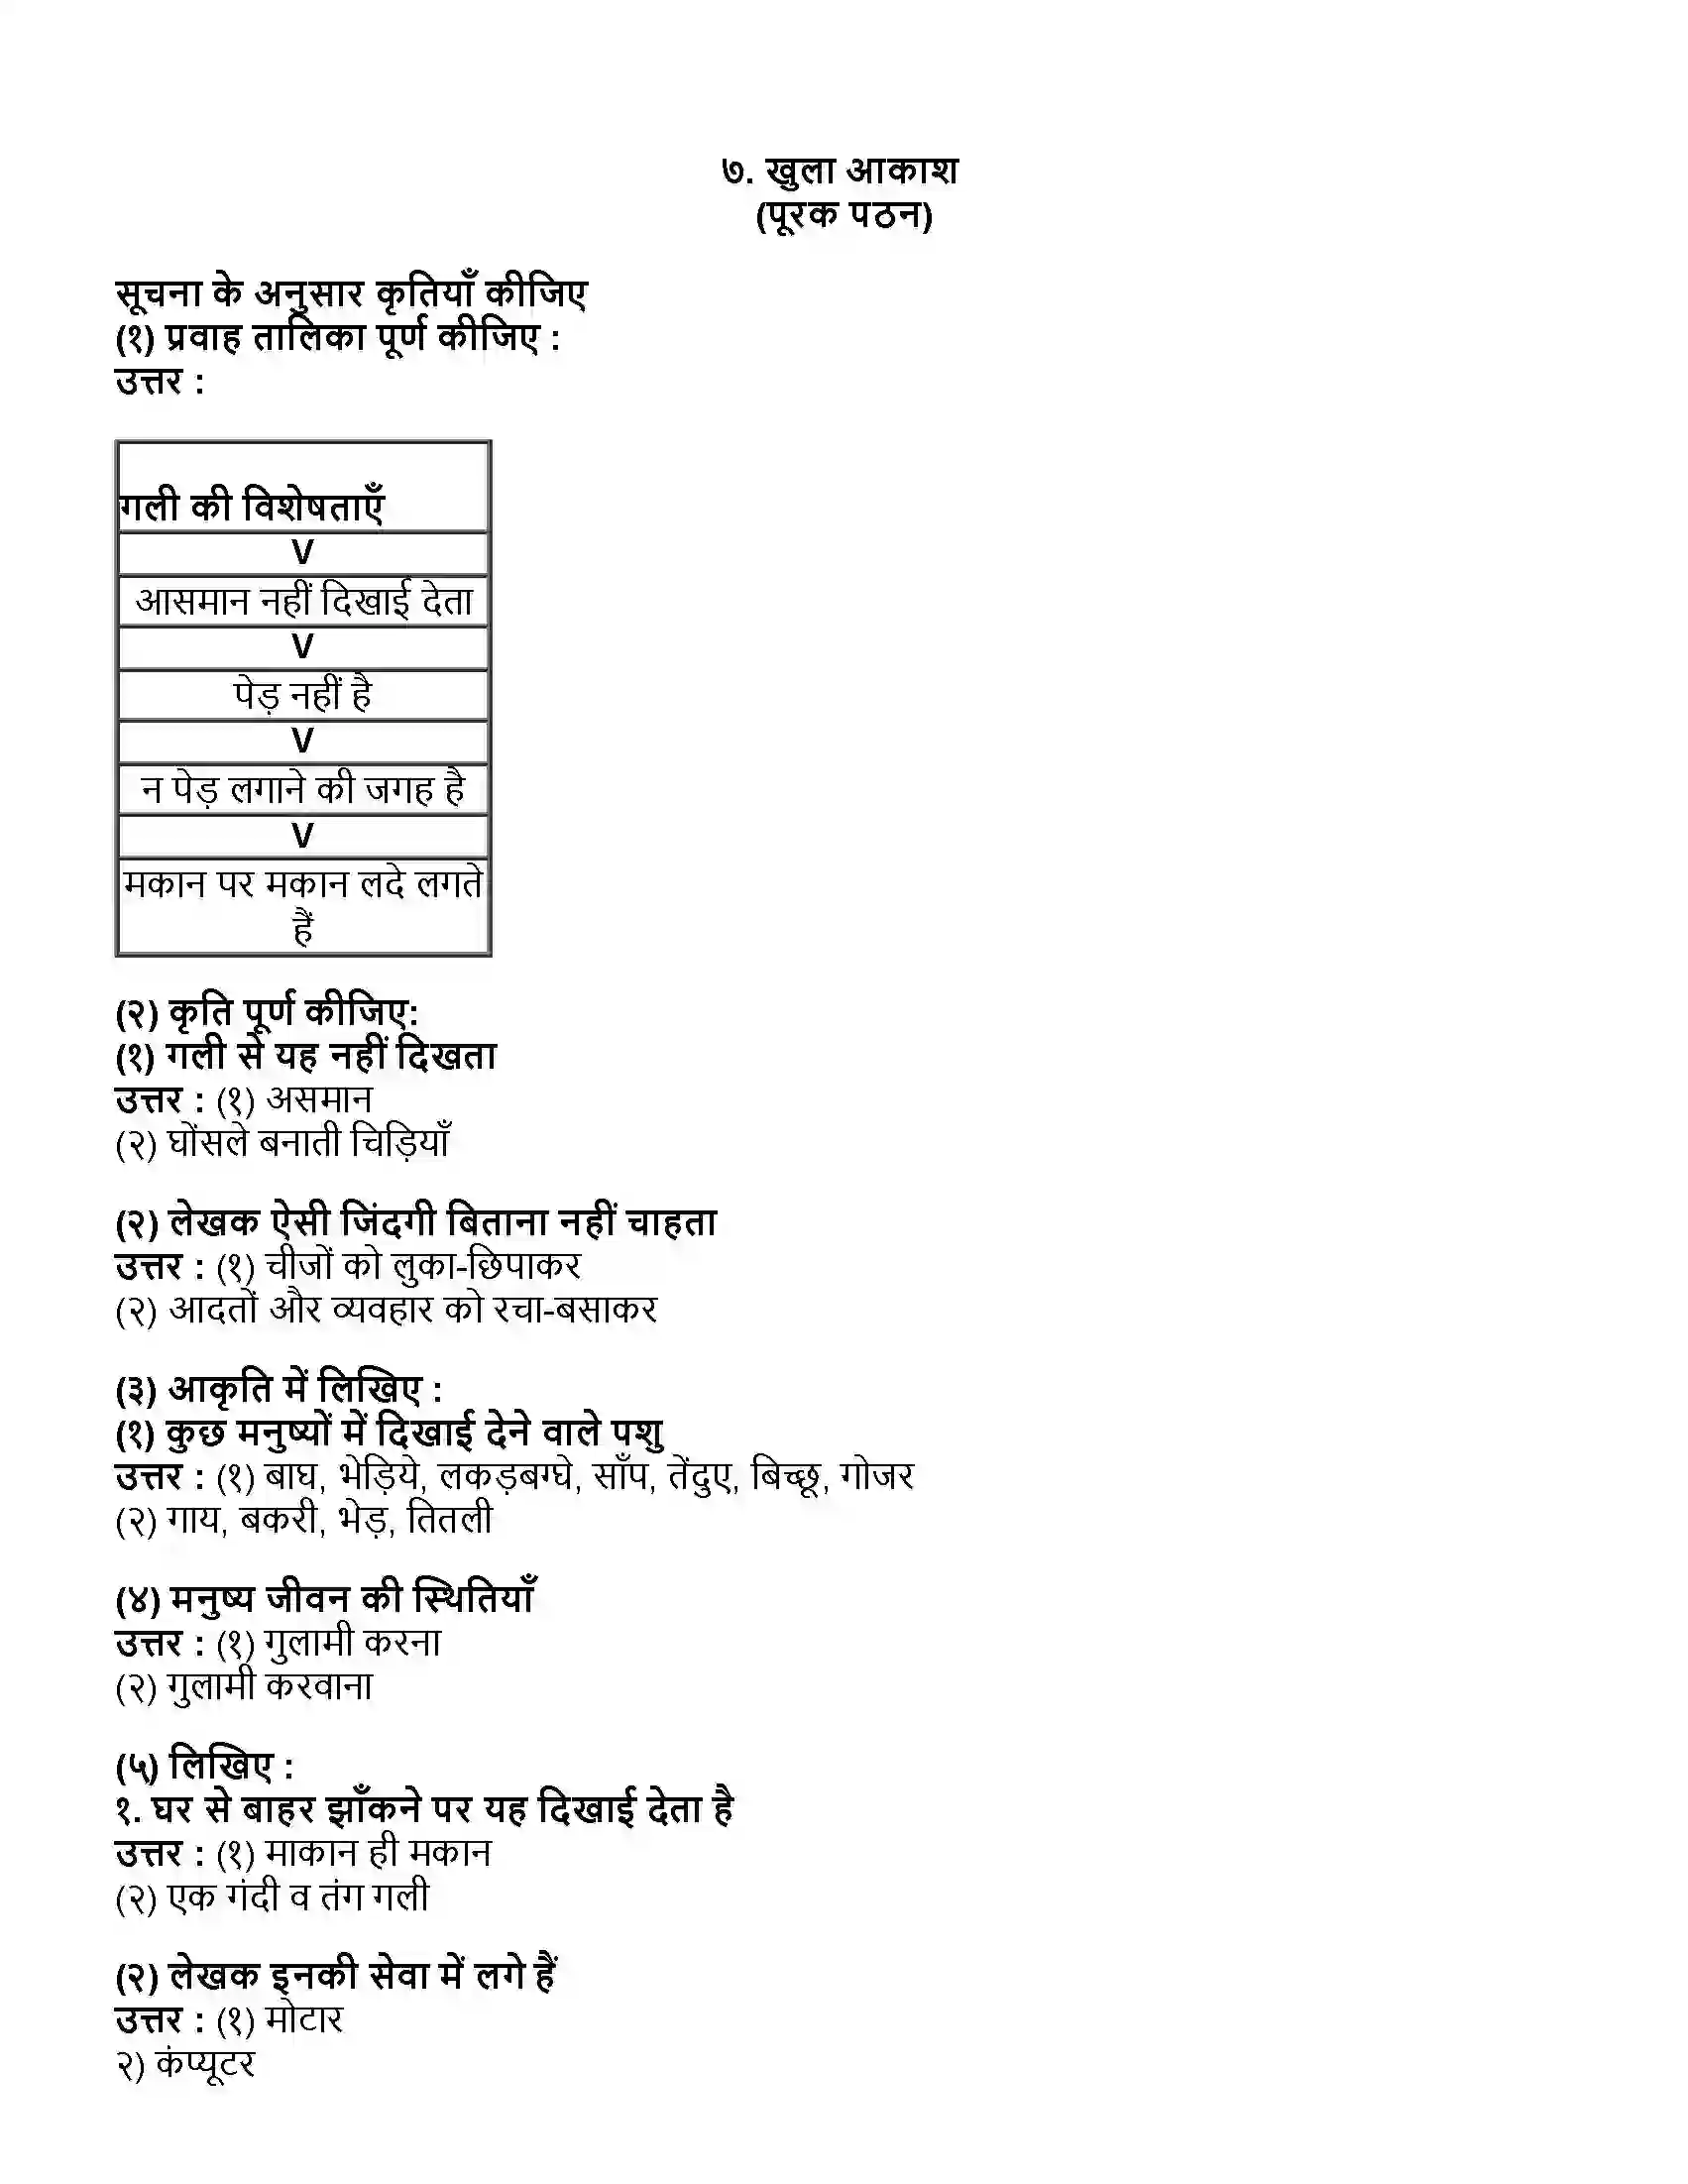 ७. खुला आकाश
(पूरक पठन)
सूचना के अनुसार कृतियाँ कीजिए
(१) प्रवाह तालिका पूर्ण कीजिए :
उत्तर :
गली की विशेषताएँ
V
आसमान नहीं दिखाई देता
V
पेड़ नहीं है
V
न पेड़ लगाने की जगह है
V
मकान पर मकान लदे लगते
हैं
(२) कृति पूर्ण कीजिए:
(१) गली से यह नहीं दिखता
उत्तर : (१) असमान
(२) घोंसले बनाती चिड़ियाँ
(२) लेखक ऐसी जिंदगी बिताना नहीं चाहता
उत्तर : (१) चीजों को लुका-छिपाकर
(२) आदतों और व्यवहार को रचा-बसाकर
(३) आकृति में लिखिए :
(१) कुछ मनुष्यों में दिखाई देने वाले पशु
उत्तर : (१) बाघ, भेड़िये, लकड़बग्घे, साँप, तेंदुए, बिच्छू, गोजर
(२) गाय, बकरी, भेड़, तितली
(४) मनुष्य जीवन की स्थितियाँ
उत्तर : (१) गुलामी करना
(२) गुलामी करवाना
(५) लिखिए :
१. घर से बाहर झाँकने पर यह दिखाई देता है
उत्तर : (१) माकान ही मकान
(२) एक गंदी व तंग गली
(२) लेखक इनकी सेवा में लगे हैं
उत्तर : (१) मोटार
२) कंप्यूटर